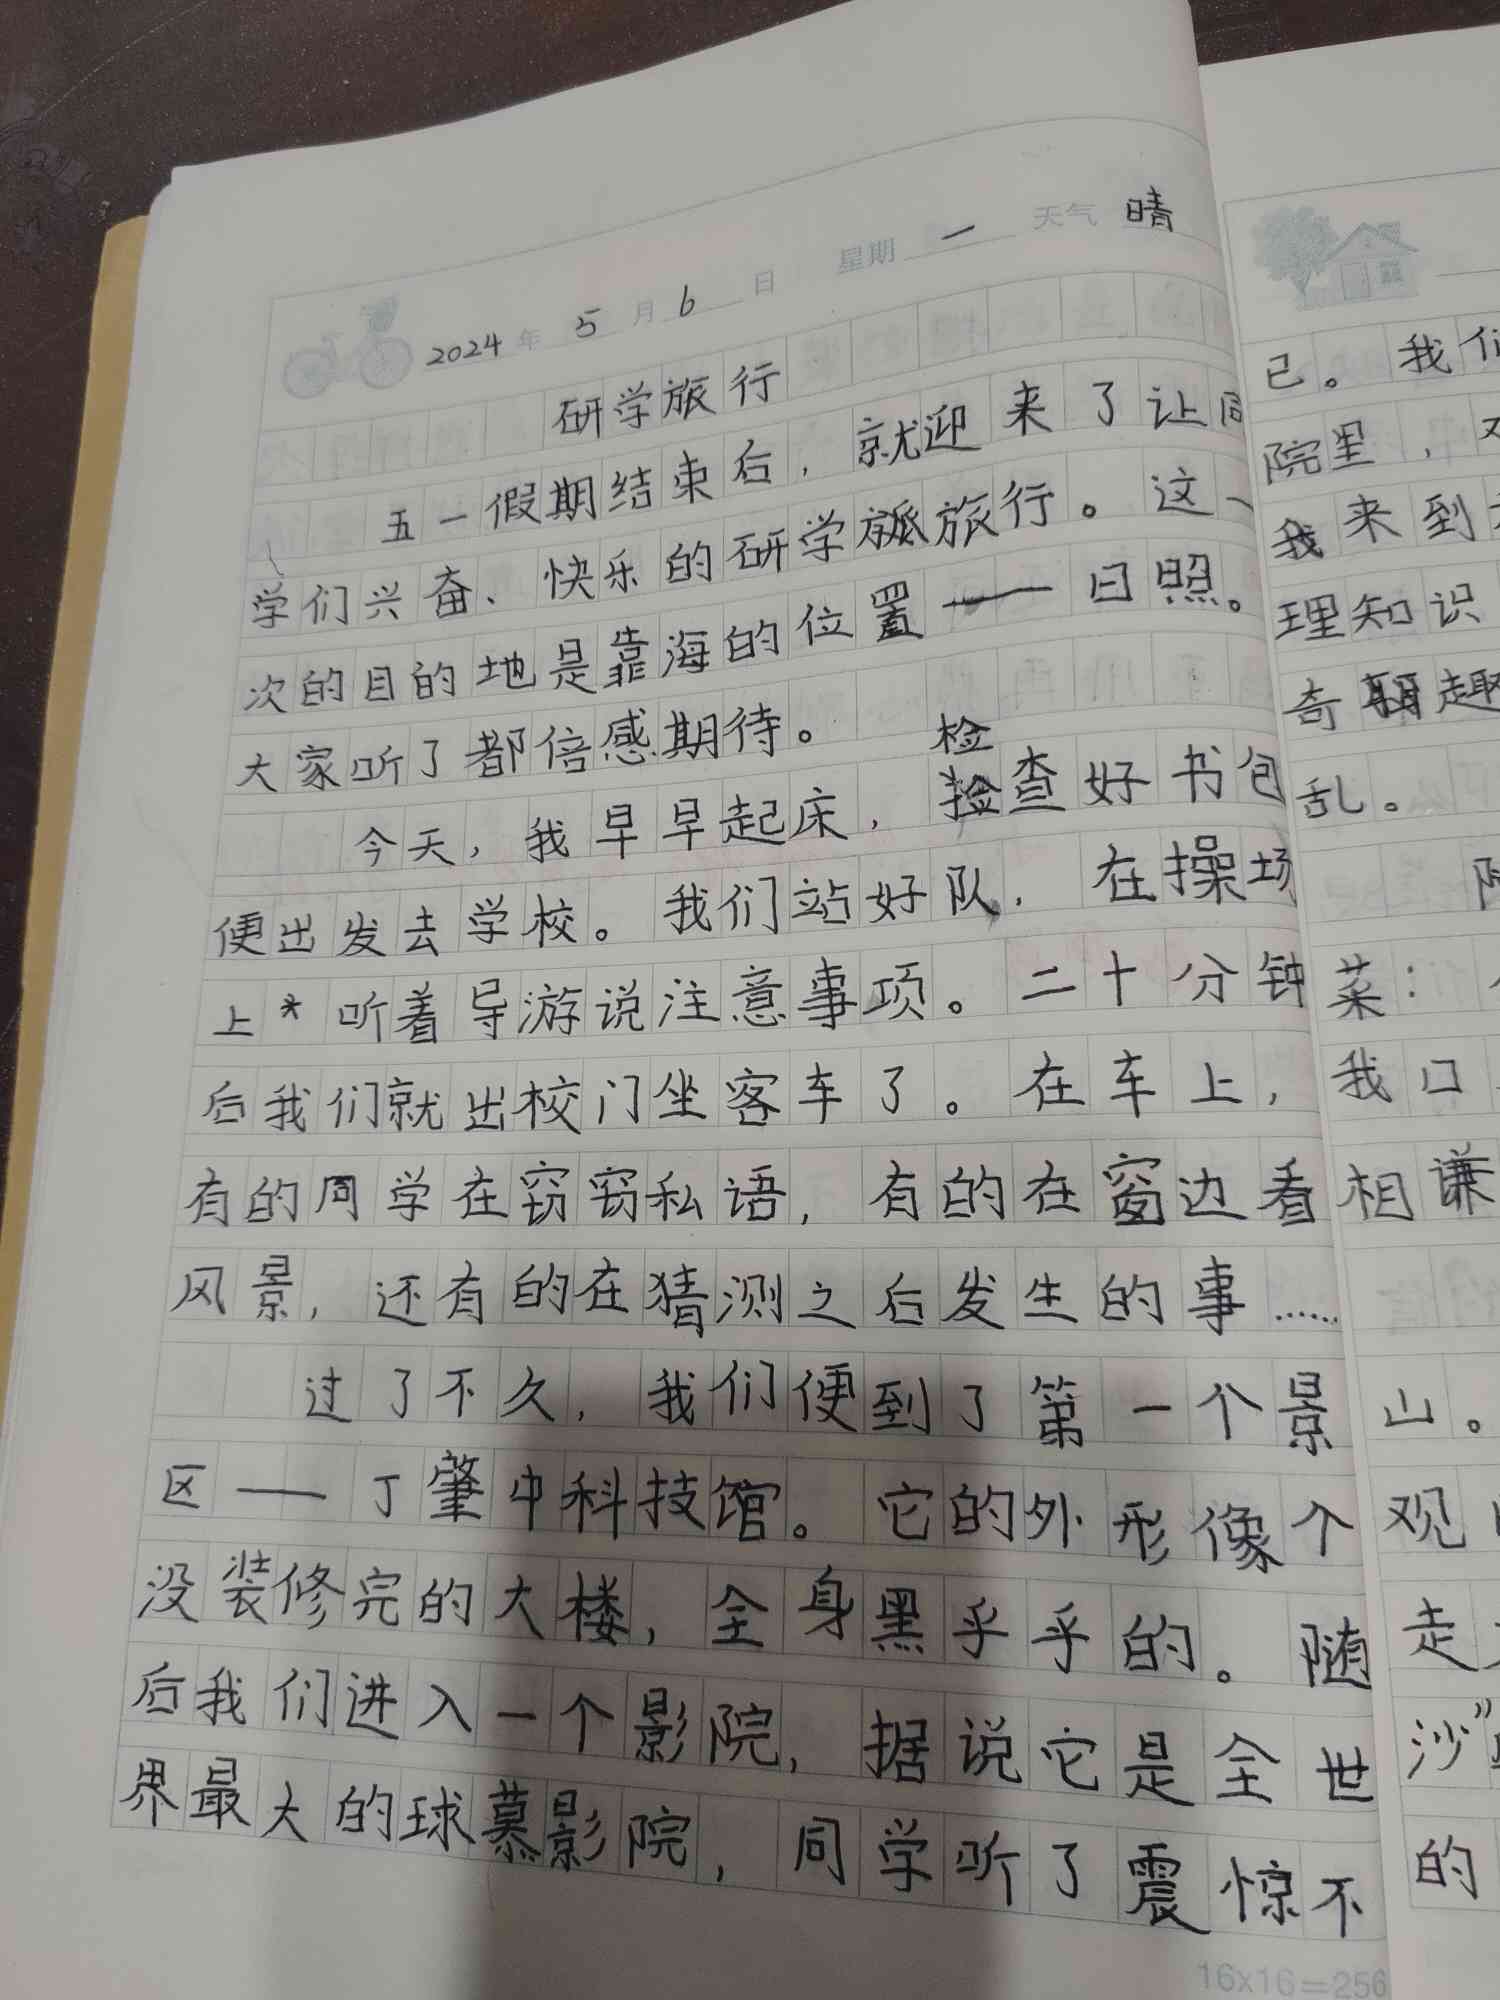 2024年 5月 6日 星期 一 天气 晴
研学旅行
五一假期结束后，就迎来了让同
学们兴奋、快乐的研学旅行。这一
次的目的地是靠海的位置——日照。
大家听了都倍感期待。
检
今天，我早早起床，检查好书包
便出发去学校。我们站好队，在操场
上*听着导游说注意事项。二十分钟
后我们就出校门坐客车了。在车上，
有的同学在窃窃私语，有的在窗边看
风景，还有的在猜测之后发生的事……
过了不久，我们便到了第一个景
区——丁肇中科技馆。它的外形像个
没装修完的大楼，全身黑乎乎的。随
后我们进入一个影院，据说它是全世
界最大的球慕影院，同学听了震惊不
16x16=256
己。我们
院里，
我来到
理知识
奇 趣
乱。
菜：
我口
相谦
山。
观
走
沙”
的